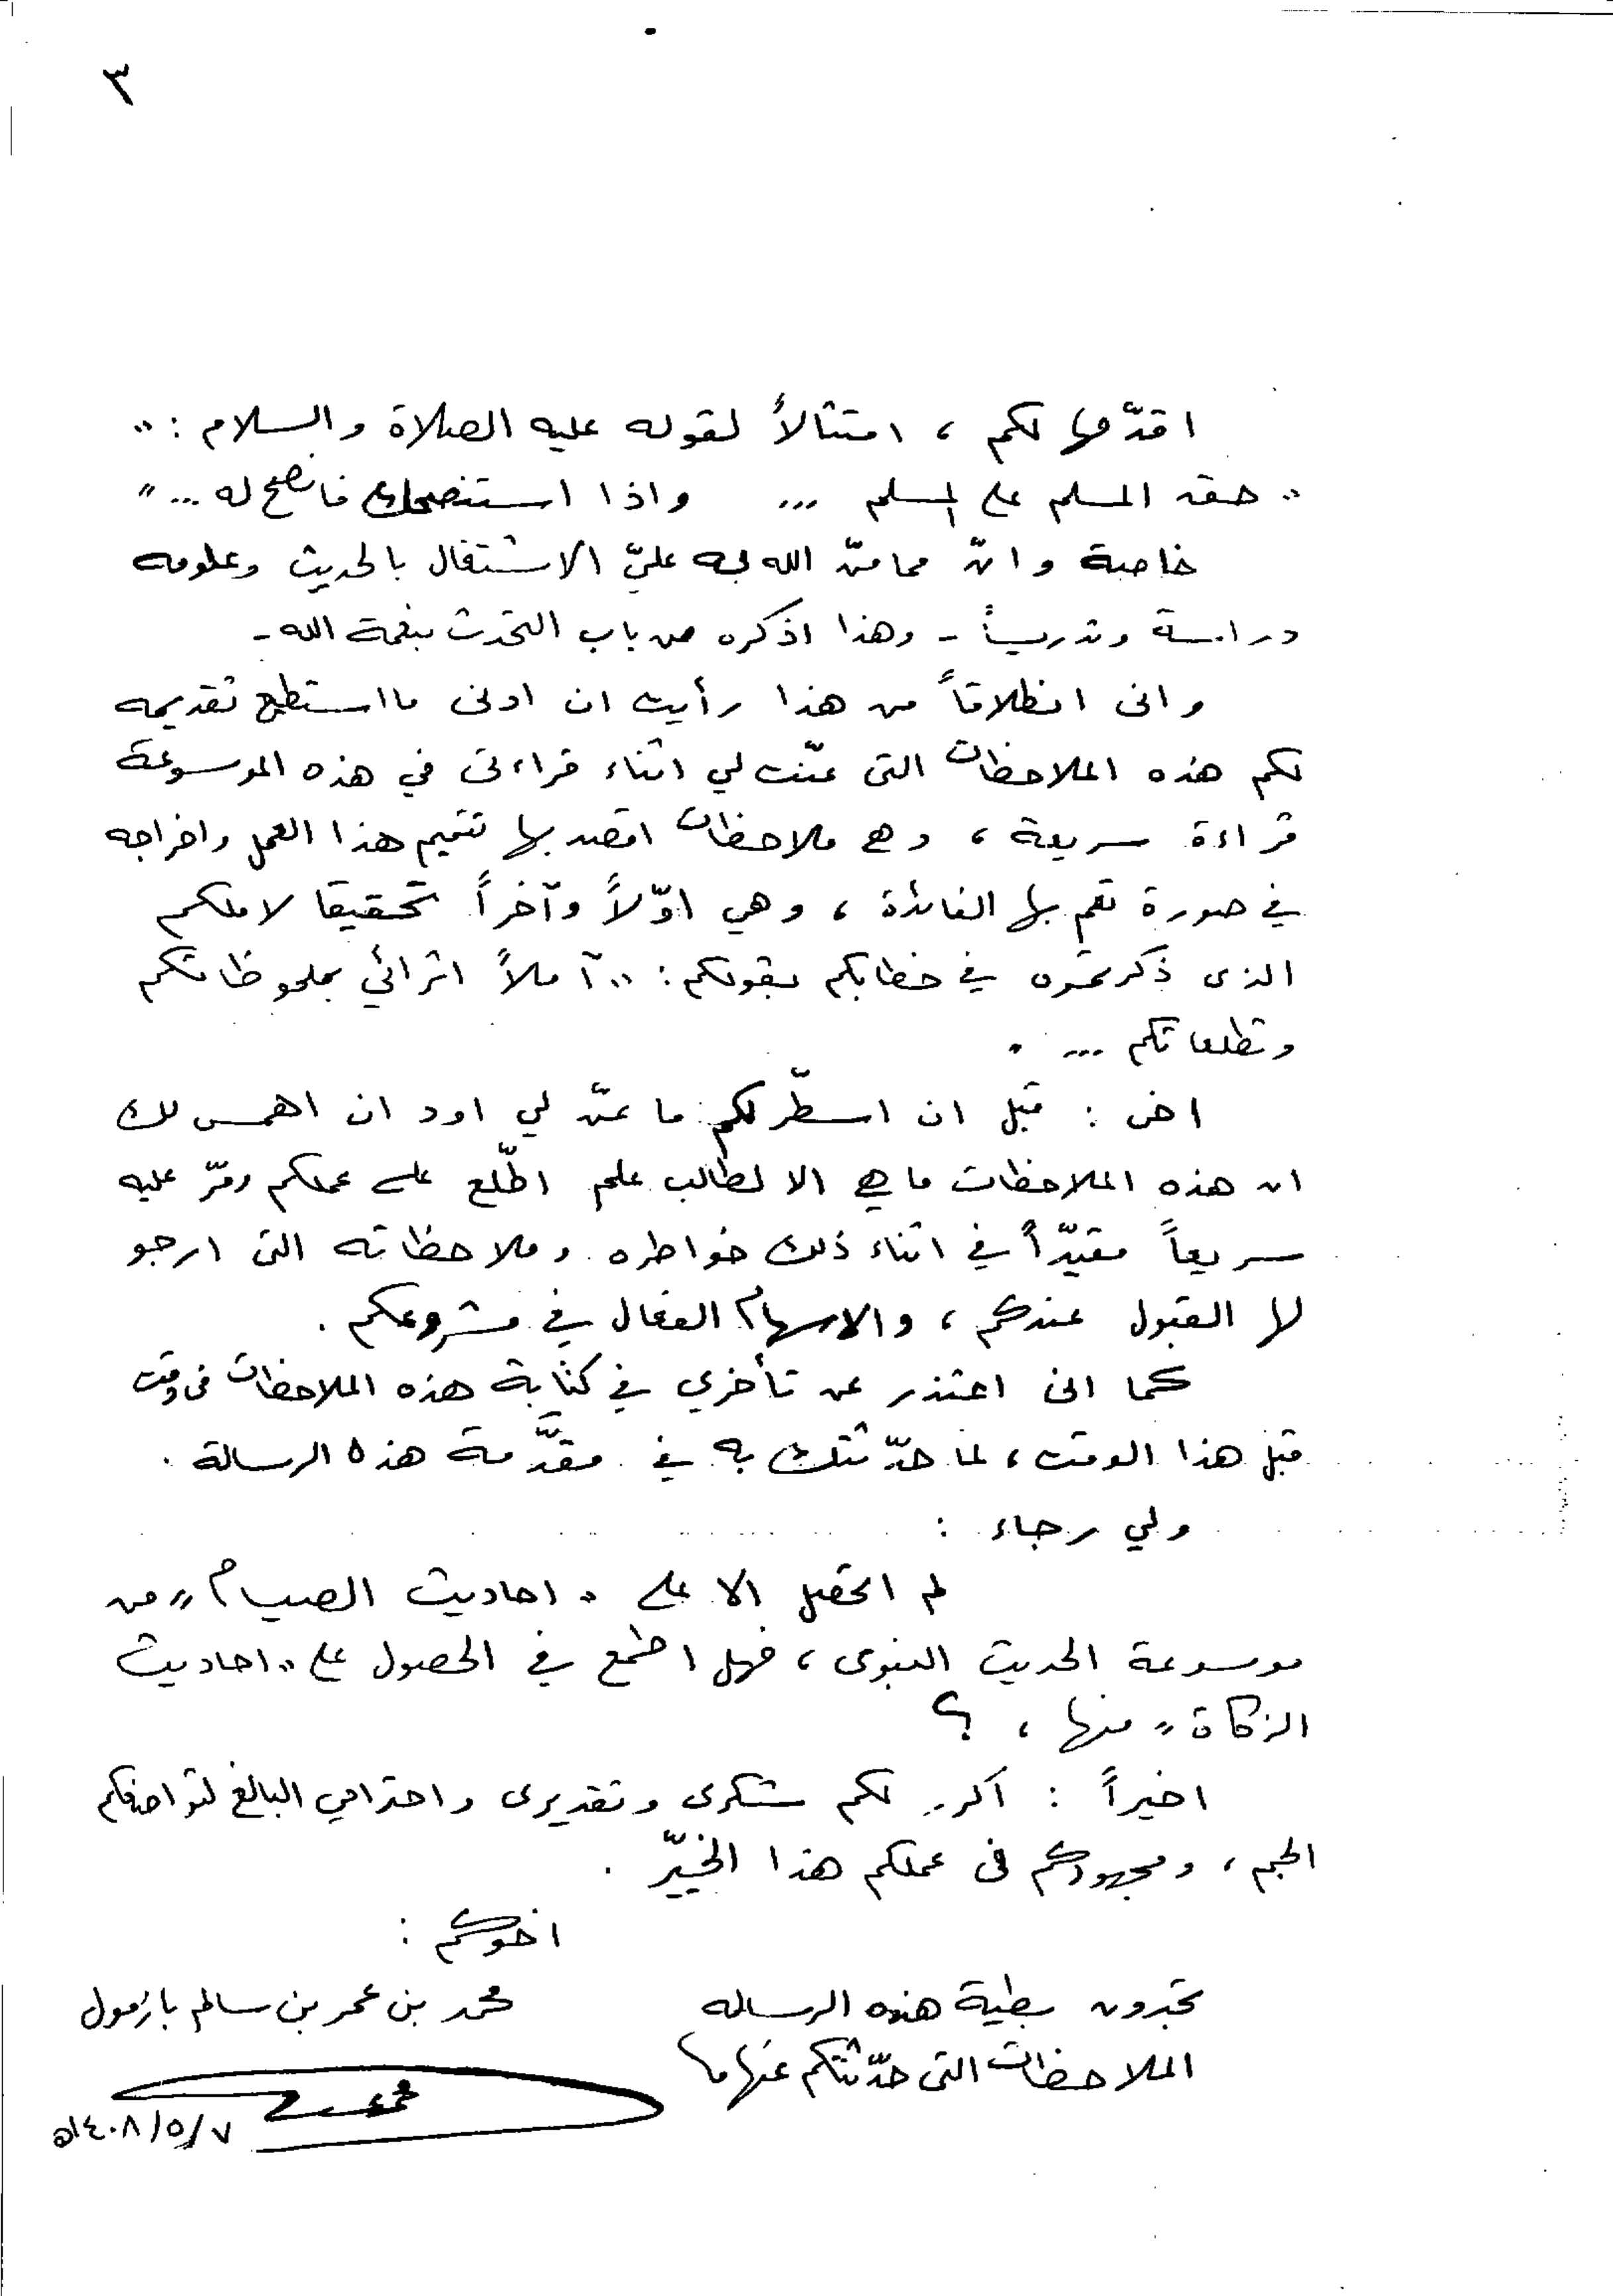 ٣
اقدّمها لكم ، امتثالاً لقوله عليه الصلاة والسلام : "
" حق المسلم على المسلم ... واذا استنصحك فانصح له ... "
خاصة وانّ مما منّ الله به عليّ الاشتغال بالحديث وعلومه
دراسة وتدريساً - وهذا اذكره من باب التحدث بنعمة الله -
وانى انطلاقاً من هذا رأيت ان ادنى ما استطيع تقديمه
لكم هذه الملاحظات التى عنّت لي اثناء قراءتى في هذه الموسوعة
قراءة سريعة ، وهي ملاحظات اقصد بها تتميم هذا العمل واخراجه
في صورة تتم بها الفائدة ، وهي اوّلاً وآخراً تحقيقا لاملكم
الذى ذكرتموه في خطابكم بقولكم : " آملاً اثرائي بملحوظاتكم
وتطلعاتكم ... .
اخى : قبل ان اسطّر لكم ما عنّ لي اود ان اهمس لك
ان هذه الملاحظات ما هي الا لطالب علم اطّلع على عملكم ومرّ عليه
سريعاً مقيّداً في اثناء ذلك خواطره وملاحظاته التى ارجو
لها القبول عندكم ، والاسهام الفعال في مشروعكم .
كما انى اعتذر عن تأخري في كتابة هذه الملاحظات فى وقت
قبل هذا الوقت ، لما حدّثتك به في مقدَّمة هذه الرسالة .
ولي رجاء :
لم اتحصل الا على " احاديث الصيام " من
موسوعة الحديث النبوى ، فهل اطمع في الحصول على " احاديث
الزكاة " منها ، ؟
اخيراً : اكرر لكم شكرى وتقديرى واحترامي البالغ لتواضعكم
الجم ، ومجهودكم فى عملكم هذا الخيّر .
اخوكم :
تجدون بطية هذه الرساله محمد بن عمر بن سالم بازمول
الملاحظات التى حدّثتكم عنها
٧/٥/١٤٠٨ه